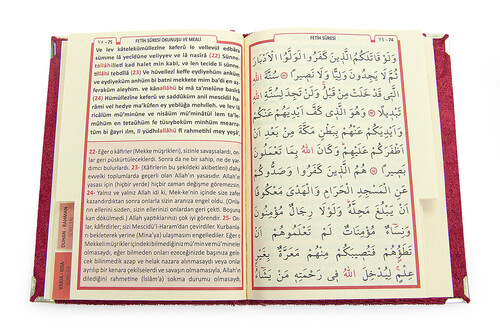 ٧٥ - 75 FETİH SÛRESİ OKUNUŞU VE MEALİ
Ve lev kâtelekümüllezine keferû le vellevül edbâra
sümme lâ yecidûne veliyyev ve lâ nasirâ (22) Sünne-
tallâhilletî kad halet min kabl, ve len tecide li sünne-
tillâhi tebdîlâ (23) Ve hüvellezî keffe eydiyehüm anküm
ve eydiyeküm anhüm bi batni mekkete mim ba'di en az-
feraküm aleyhim. ve kânallâhü bi mâ ta'melûne basîrâ
(24) Hümüllezîne keferû ve saddûküm anil mescidil ha-
râmi vel hedye ma'kûfen ey yeblüğa mehılleh. ve lev lâ
ricâlüm mü'minûne ve nisâüm mü'minâtül lem ta'le-
mûhüm en tetaûhüm fe tüsıybeküm minhüm mearra-
tüm bi ğayri ılm, li yüdhılallâhü fî rahmetihî mey yeşâ',
22- Eğer o kâfirler (Mekke müşrikleri), sizinle savaşsalardı, on-
lar geri püskürtüleceklerdi. Sonra da ne bir sahip, ne de yar-
dımcı bulurlardı. 23- (Kâfirlerin bu şekildeki akibetleri) daha
evvelki toplumlarda geçerli olan Allah'ın yasasıdır. Allah'ın
yasası için (hiçbir yerde) hiçbir zaman değişme göremezsin.
24- Yalnız ve yalnız Allah idi ki, Mek-ke'nin içinde size zafer
kazandırdıktan sonra onlarla sizin aranıza engel oldu. (Onla-
rın ellerini sizden, sizin ellerinizi onlardan geri çekti. Boşuna
kan dökülmedi.) Allah yaptıklarınızı çok iyi görendir. 25- On-
lar, kâfirdirler; sizi Mescidü'l-Haram'dan çevirdiler. Kurbanla-
rı bekleterek yerine (Mina'ya) ulaşmasını engellediler. Eğer o
Mekkeli müşriklerin içinde bilmediğiniz mü'min ve mü'mineler
olmasaydı, eğer bilmeden onları ezeceğinizde başınıza gele-
cek bilinmedik azap ve helak nazara alınmasaydı veya onla
ayrılıp bir kenara çekilselerdi ve savaşın olmamasıyla, Allah'ın
dilediğini rahmetine (İslâm'a) sokma durumu olmasaydı,
FETİH SÛRESİ 74 - ٧٤
وَلَوْ قَاتَلَكُمُ الَّذِينَ كَفَرُوا لَوَلَّوُا الْاَدْبَارَ
ثُمَّ لَا يَجِدُونَ وَلِيًّا وَلَا نَصِيرًا سُنَّةَ اللّٰهِ
الَّتِي قَدْ خَلَتْ مِنْ قَبْلُ وَلَنْ تَجِدَ لِسُنَّةِ اللّٰهِ
تَبْدِيلًا وَهُوَ الَّذِي كَفَّ اَيْدِيَهُمْ عَنْكُمْ
وَاَيْدِيَكُمْ عَنْهُمْ بِبَطْنِ مَكَّةَ مِنْ بَعْدِ اَنْ
اَظْفَرَكُمْ عَلَيْهِمْ وَكَانَ اللّٰهُ بِمَا تَعْمَلُونَ
بَصِيرًا هُمُ الَّذِينَ كَفَرُوا وَصَدُّوكُمْ
عَنِ الْمَسْجِدِ الْحَرَامِ وَالْهَدْيَ مَعْكُوفًا
اَنْ يَبْلُغَ مَحِلَّهُ وَلَوْلَا رِجَالٌ مُؤْمِنُونَ
وَنِسَاءٌ مُؤْمِنَاتٌ لَمْ تَعْلَمُوهُمْ اَنْ
تَطَؤُهُمْ فَتُصِيبَكُمْ مِنْهُمْ مَعَرَّةٌ بِغَيْرِ
عِلْمٍ لِيُدْخِلَ اللّٰهُ فِي رَحْمَتِهِ مَنْ يَشَاءُ